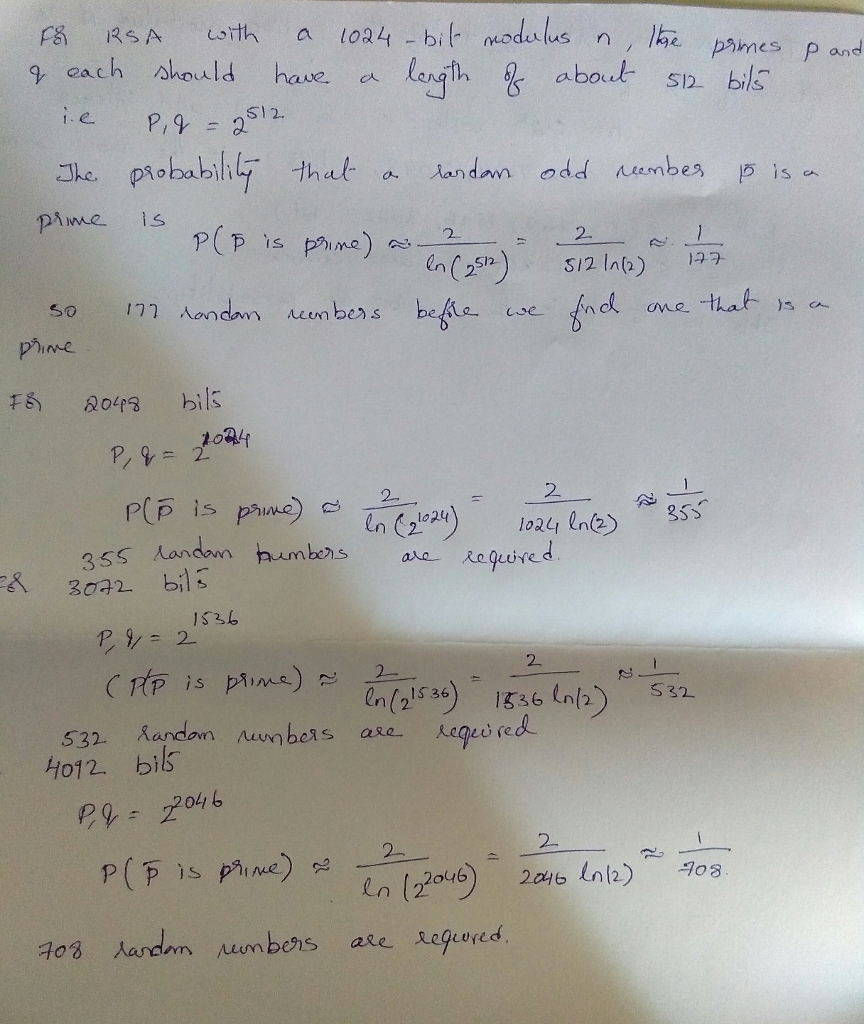 For RSA with a 1024-bit modulus n, the primes p and
q each should have a length of about 512 bits
i.e P,q = 2^512
The probability that a random odd number p̃ is a
prime is
P(p̃ is prime) ≈ 2/ln(2^512) = 2/(512 ln(2)) ≈ 1/177
so 177 random numbers before we find one that is a
prime.
For 2048 bits
P,q = 2^1024
P(p̃ is prime) ≈ 2/ln(2^1024) = 2/(1024 ln(2)) ≈ 1/355
355 random numbers are required.
For 3072 bits
P,q = 2^1536
(P(p̃ is prime) ≈ 2/ln(2^1536) = 2/(1536 ln(2)) ≈ 1/532
532 random numbers are required
4092 bits
P,q = 2^2046
P(p̃ is prime) ≈ 2/ln(2^2046) = 2/(2046 ln(2)) ≈ 1/708.
708 random numbers are required.